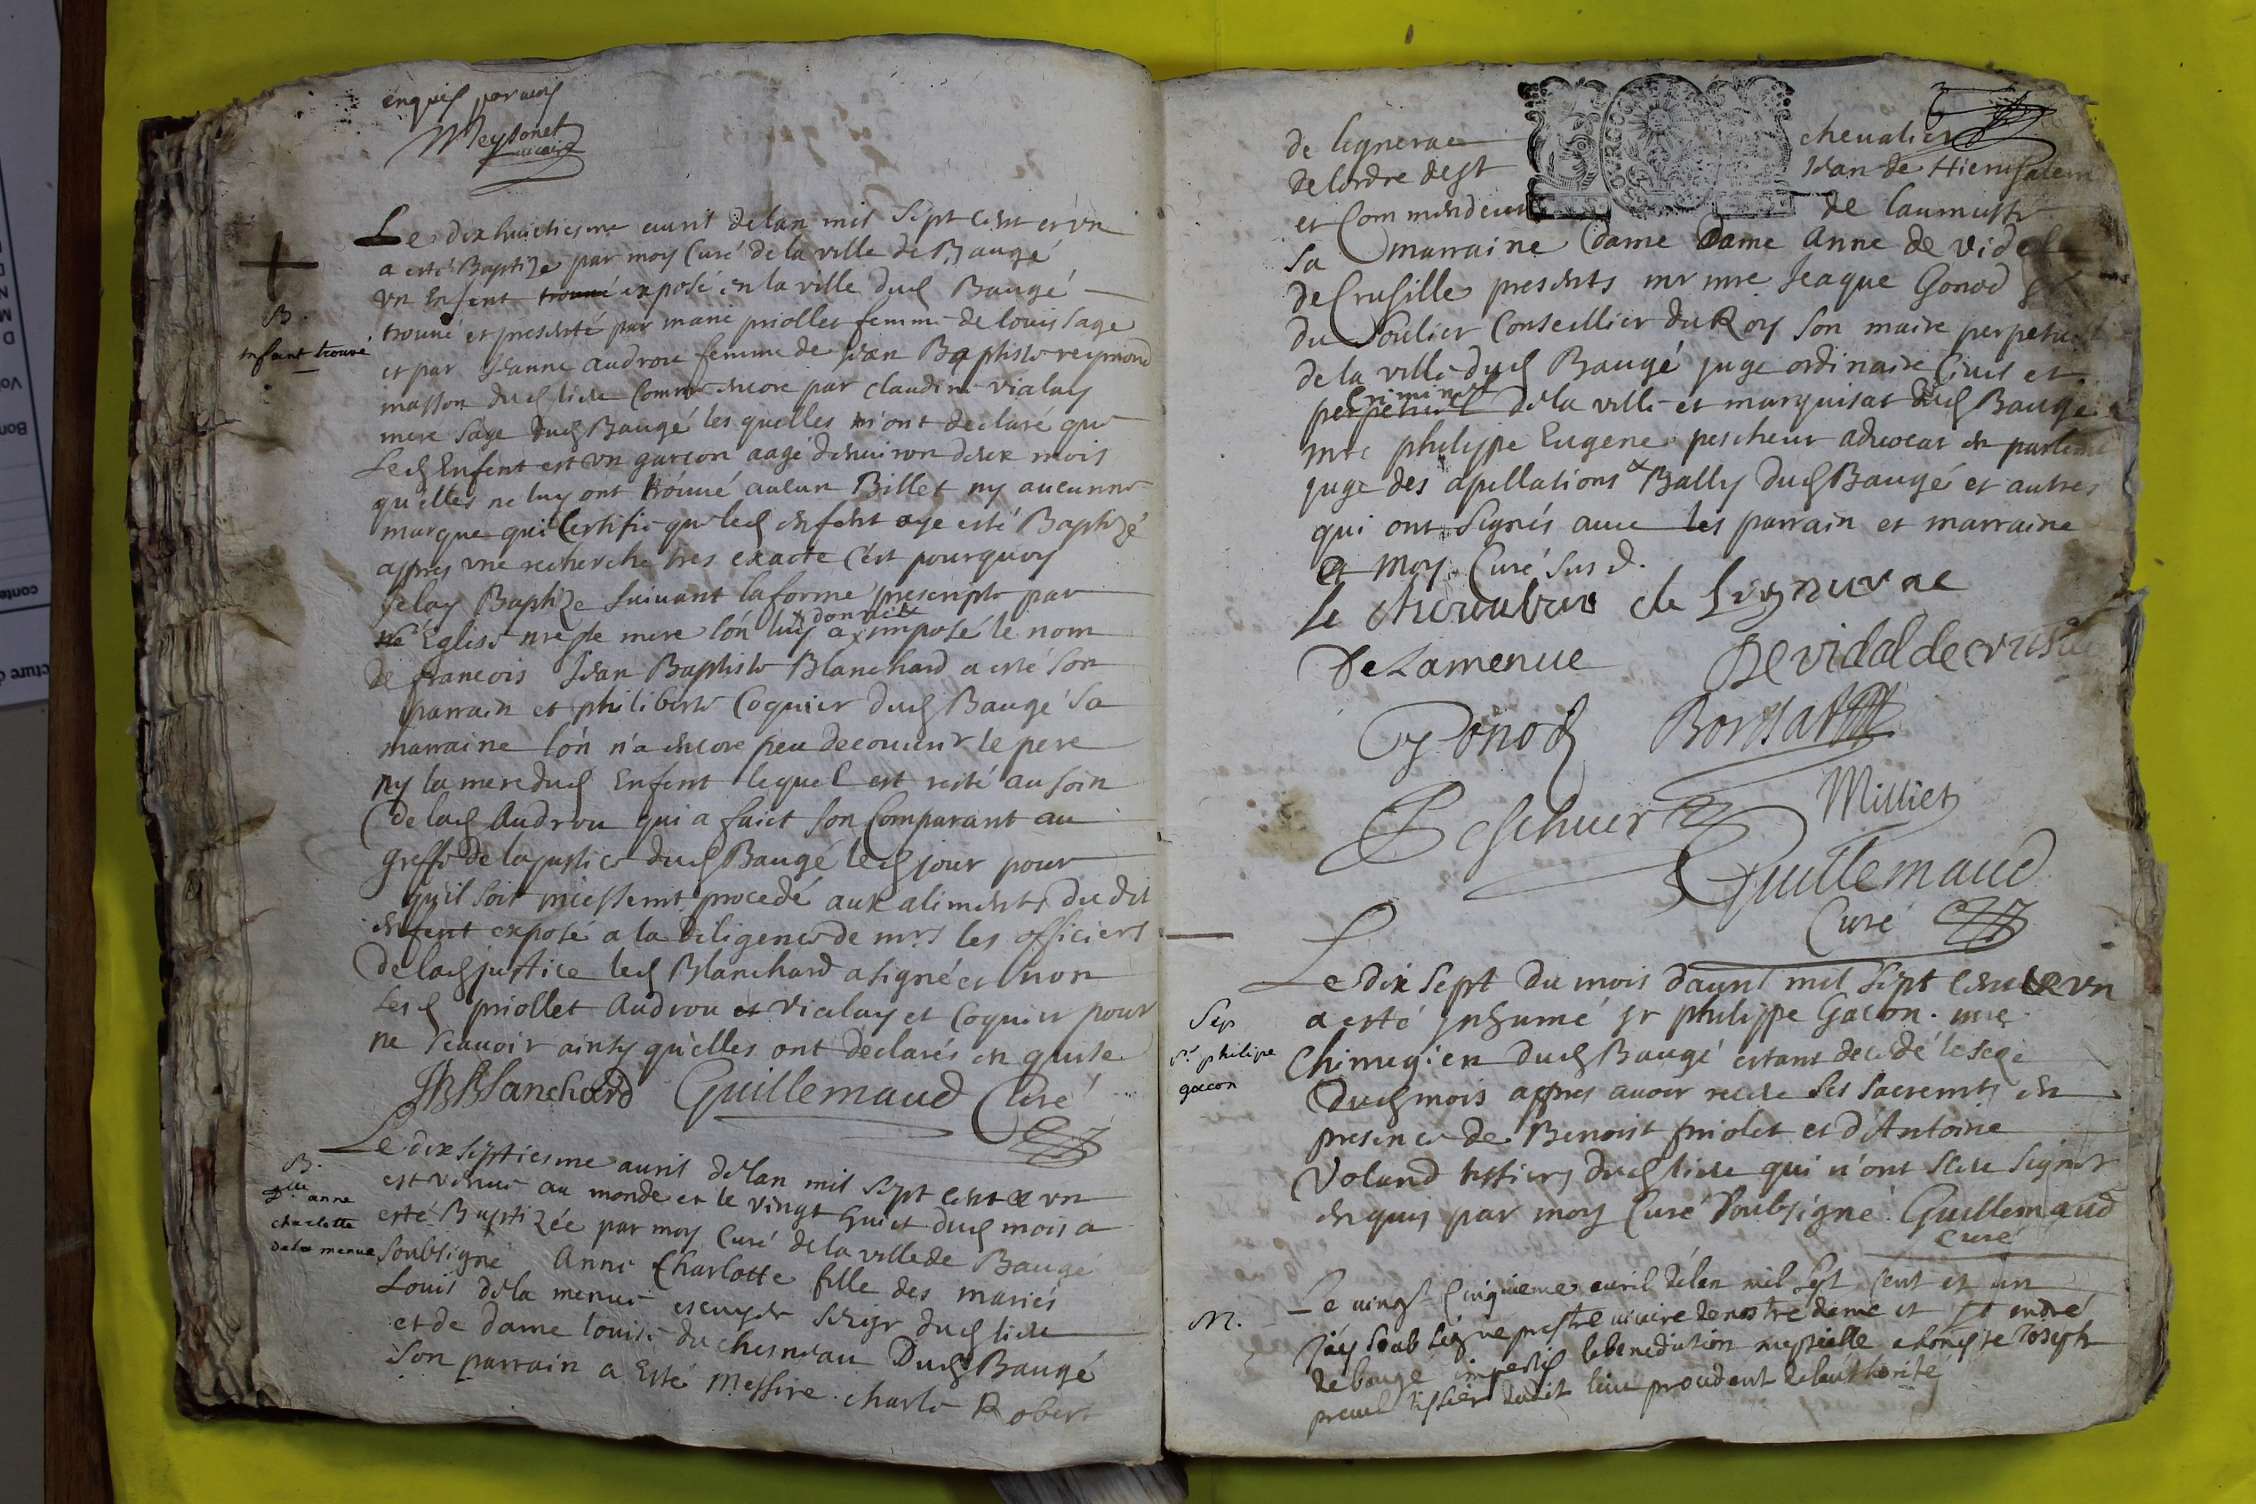 enquis par moy
Meysonet
vicaire
Le dix huictiesme avril de lan mil sept cent et vn
a esté Baptizé par moy Curé de la ville de Baugé
vn Enfent trouué exposé en la ville dud Baugé
B.
enfant trouvé
trouué et presenté par marie priollet femme de louis sage
et par Jeanne audrou femme de Jean Baptiste reymond
masson dud lieu Comme encore par claudine vialay
mere sage dud Baugé les quelles m'ont declaré que
led Enfent est vn garcon aagé denuiron deux mois
qu'elles ne luy ont trouué aucun Billet ny aucunne
marque qui Certifie que led enfent aye esté Baptizé
appres vne recherche tres exacte c'est pourquoy
je lay Baptize suivant la forme prescripte par
Eglise nre ste mere lón luy a donné et imposé le nom
de francois Jean Baptiste Blanchard a esté son
parrain et philiberte Coquier dud Baugé sa
marraine lón n'a encore peu decouurir le pere
ny la mere dud Enfent lequel est resté au soin
de lad Audrou qui a faict son Comparant au
greffe de la justice dud Baugé led jour pour
qu'il soit incessemt procedé aux aliments du dit
enfent exposé a la diligence de mrs les officiers
de lad justice led Blanchard a signé et non
lesd priollet Audrou et vialay et Coquier pour
ne scauoir ainsy qu'elles ont declarés en quise
JBBlanchard Guillemaud Curé
B.
dlle anne
charlotte
de la menue
Le dix septiesme auril de lan mil sept cent et vn
est venue au monde et le vingt huict dud mois a
esté Baptizée par moy Curé de la ville de Baugé
soubsigné Anne Charlotte fille des mariés
Louis de la menue escuyer seigr dud lieu
et de dame louise du chesneau Dud Baugé
son parrain a Esté Messire charle Robert
de lignerac chevalier
de lordre de st Jean de Hierusalem
et Commendeur de laumusse
sa marraine dame Dame Anne de videl
de Crusille presents mr mre Jeaque Gonod
du Soulier Conseillier du Roy son maire perpetuel
de la ville dud Baugé juge ordinaire Ciuil et
Criminel
perpetuel de la ville et marquisat dud Baugé
mre philippe Eugene pescheur aduocat en parleme
juge des apellations & Bally dud Baugé et autres
qui ont signés auec les parrain et marraine
et moy Curé susd.
le cheualier de Lignerac
De Lamenue De vidal de crusille
Gonod Borssat
Pescheur Milliet
Guillemaud
Curé
Sep
sr philipe
gacon
Le dix sept du mois dauril mil sept cent et vn
a esté jnhumé sr philippe Gacon. mre
Chirurgien dud Baugé estant decedé le seze
dud mois appres auoir receu ses sacremts en
presence de Benoist friolet et d'Antoine
Voland tissiers dud lieu qui n'ont sceu signer
enquis par moy Curé soubsigné. Guillemaud
curé
M.
Le vingt Cinquieme avril de lan mil sept cent et un
j'ay soubsigne prestre vicaire de nostre dame et st andré
de bauge imparti la benediction nuptialle a honeste Joseph
preuel tissier dudit lieu procedent de l'authorité